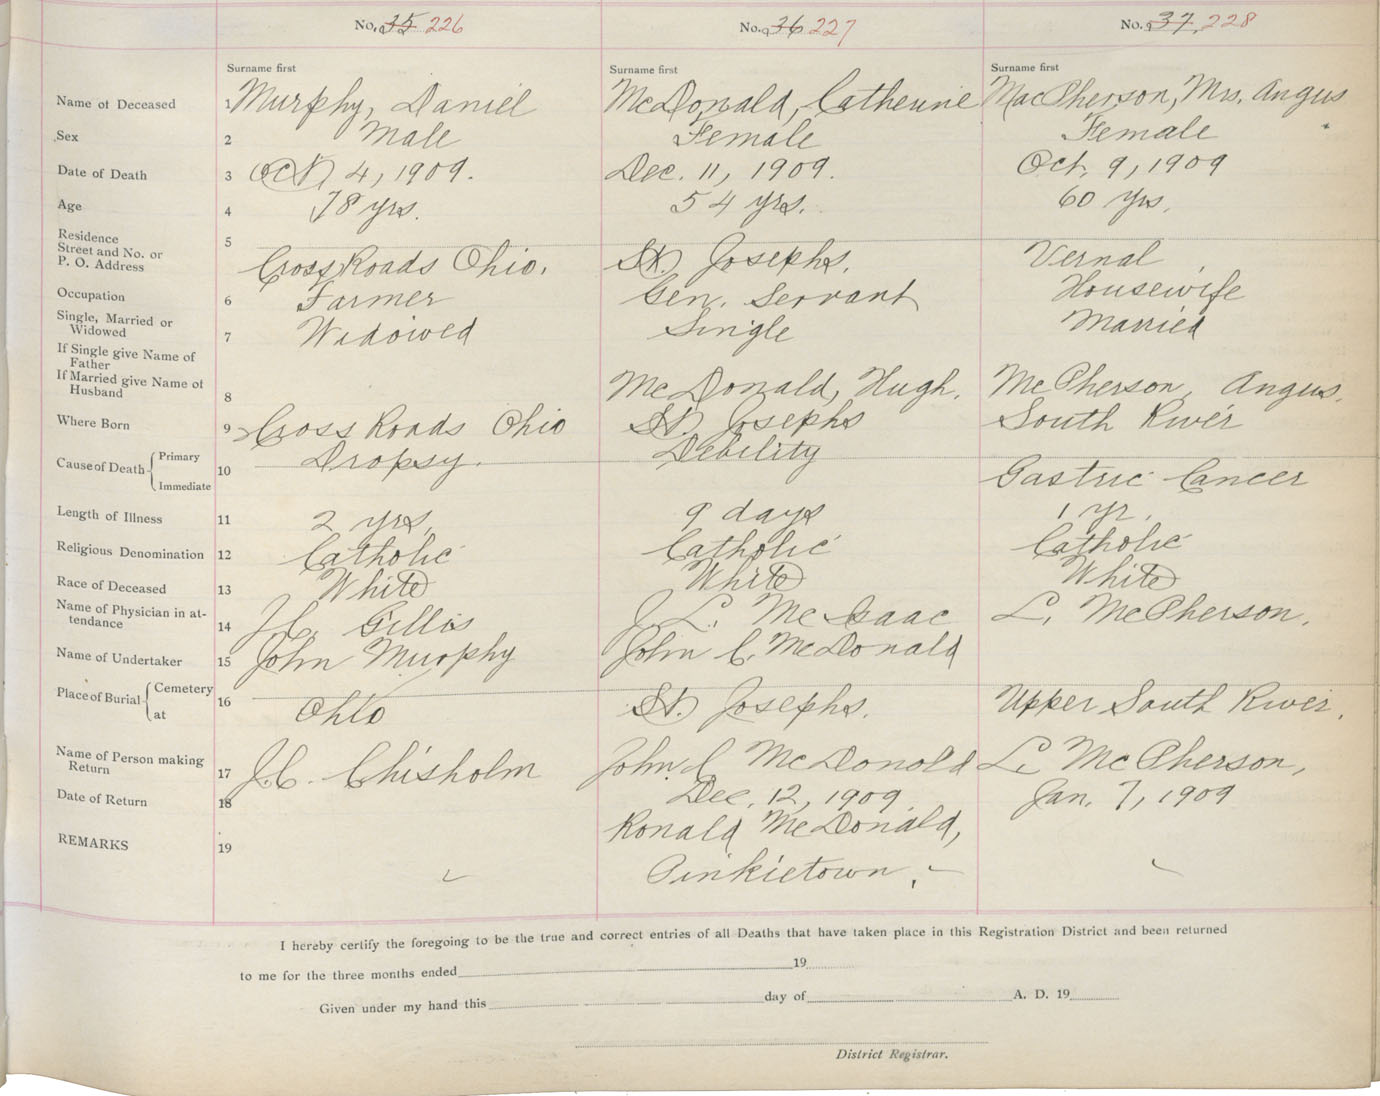 No. 35 226 No. 36 227 No. 37, 228
Surname first Surname first Surname first
Name of Deceased 1 Murphy, Daniel McDonald, Catherine MacPherson, Mrs. Angus
Sex 2 Male Female Female
Date of Death 3 Oct 4, 1909. Dec. 11, 1909. Oct. 9, 1909
Age 4 78 yrs. 54 yrs. 60 yrs.
Residence 5
Street and No. or
P. O. Address Cross Roads Ohio. St. Josephs. Vernal
Occupation 6 Farmer Gen. Servant Housewife
Single, Married or
Widowed 7 Widowed Single Married
If Single give Name of
Father
If Married give Name of
Husband 8 McDonald, Hugh. McPherson, Angus.
Where Born 9 Cross Roads Ohio St. Josephs South River
Cause of Death Primary Dropsy. Debility
Immediate 10 Gastric Cancer
Length of Illness 11 2 yrs. 9 days 1 yr.
Religious Denomination 12 Catholic Catholic Catholic
Race of Deceased 13 White White White
Name of Physician in at-
tendance 14 Gillis J. L. McIsaac L. McPherson.
Name of Undertaker 15 John Murphy John C. McDonald
Place of Burial Cemetery
at 16 Ohio St. Josephs. Upper South River.
Name of Person making
Return 17 J.C. Chisholm John C McDonold L. McPherson,
Date of Return 18 Dec. 12, 1909 Jan. 7, 1909
REMARKS 19 Ronald McDonald,
Pinkietown,
I hereby certify the foregoing to be the true and correct entries of all Deaths that have taken place in this Registration District and been returned
to me for the three months ended 19
Given under my hand this day of A. D. 19
District Registrar.